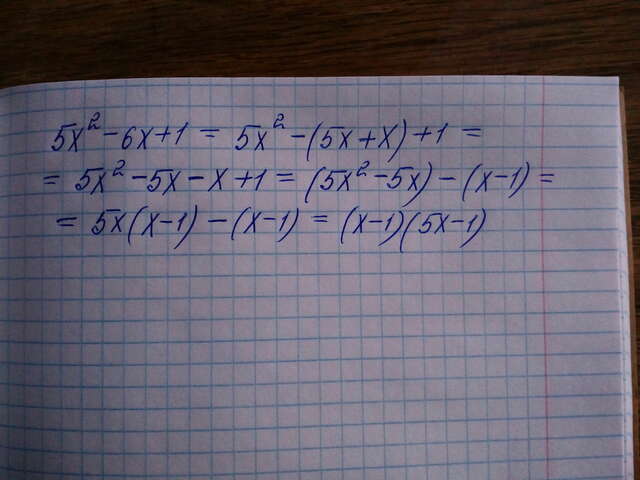 5x² - 6x + 1 = 5x² - (5x + x) + 1 =
= 5x² - 5x - x + 1 = (5x² - 5x) - (x - 1) =
= 5x(x - 1) - (x - 1) = (x - 1)(5x - 1)